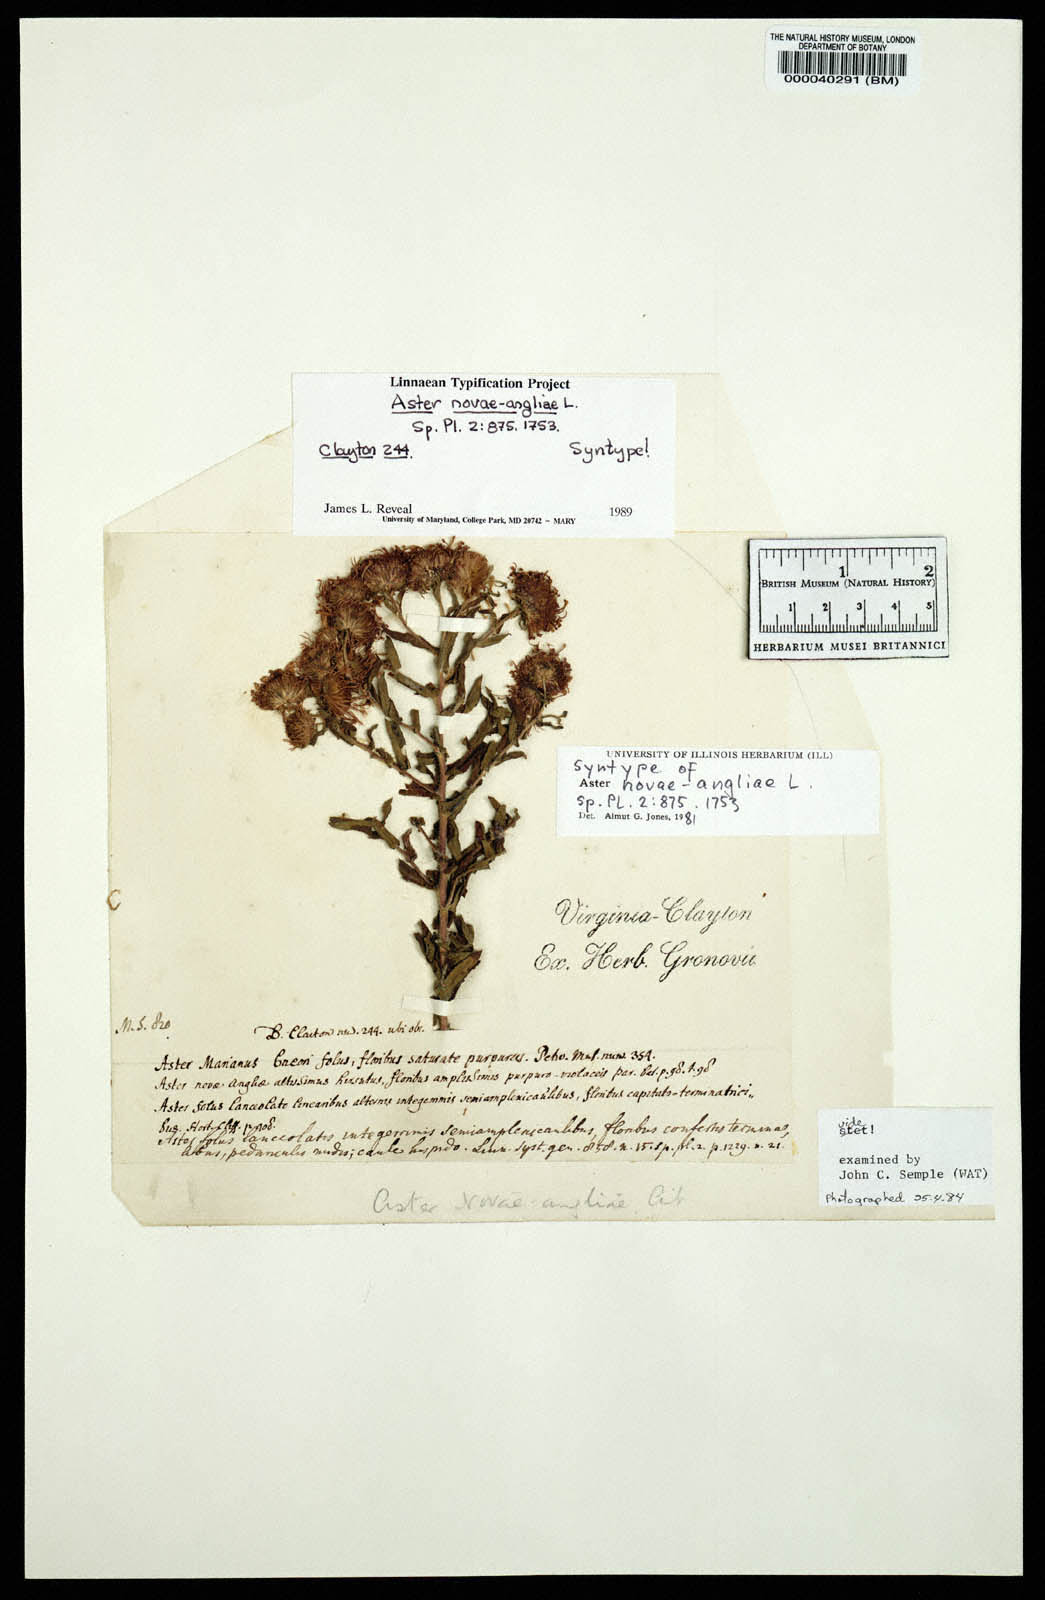 THE NATURAL HISTORY MUSEUM, LONDON
DEPARTMENT OF BOTANY
000040291 (BM)
Linnaean Typification Project
Aster novae-angliae L.
Sp. Pl. 2:875. 1753.
Clayton 244. Syntype!
James L. Reveal 1989
University of Maryland, College Park, MD 20742 – MARY
1 2
BRITISH MUSEUM (NATURAL HISTORY)
1 2 3 4 5
HERBARIUM MUSEI BRITANNICI
UNIVERSITY OF ILLINOIS HERBARIUM (ILL)
Syntype of
Aster novae-angliae L.
Sp. Pl. 2:875. 1753
Det. Almut G. Jones, 1981
C
Virginia-Clayton
Ex. Herb. Gronovii
M.S. 820
D. Claiton no. 244. ubi obs.
Aster Marianus folus, floribus saturate purpureis. Petiv. Mus. num. 354.
Aster novæ Angliæ altissimus hirsutus, floribus amplissimis purpuro-violaceis par. bat. p. 98. t. 98
Aster folus lanceolato linearibus alternis integerrimis semiamplexicaulibus, floribus capitato-terminatrici..
Hort. Cliff. p. 408.
Aster folus lanceolatis integerrimis semiamplexicaulibus, floribus confertis terminas,
libus, pedunculis nudis; caule hispido. Linn. Syst. gen. 858. n. 15. Sp. pl. 2. p. 1229. n. 21.
Aster Novae-angliae
vide
stet!
examined by
John C. Semple (WAT)
Photographed 25.4.84